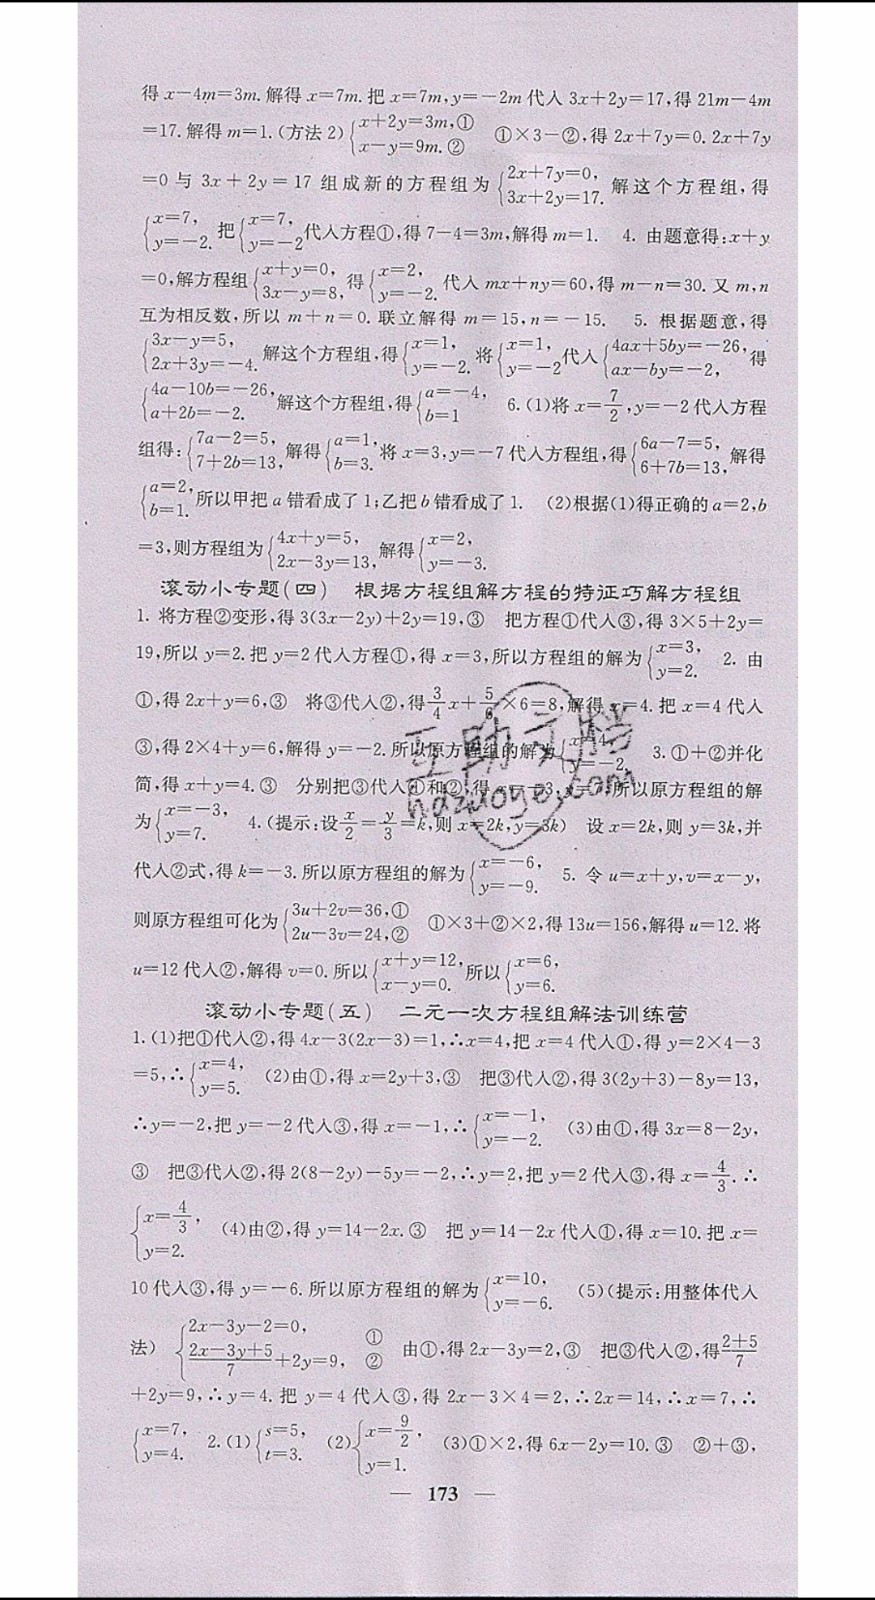 得 x－4m＝3m. 解得 x＝7m. 把 x＝7m, y＝－2m 代入 3x＋2y＝17, 得 21m－4m
＝17. 解得 m＝1. (方法 2) {x＋2y＝3m, ① x－y＝9m. ② ①×3－②, 得 2x＋7y＝0. 2x＋7y
＝0 与 3x＋2y＝17 组成新的方程组为 {2x＋7y＝0, 3x＋2y＝17. 解这个方程组, 得
{x＝7, y＝－2. 把 {x＝7, y＝－2 代入方程①, 得 7－4＝3m, 解得 m＝1. 4. 由题意得: x＋y
＝0, 解方程组 {x＋y＝0, 3x－y＝8, 得 {x＝2, y＝－2. 代入 mx＋ny＝60, 得 m－n＝30. 又 m, n
互为相反数, 所以 m＋n＝0. 联立解得 m＝15, n＝－15. 5. 根据题意, 得
{3x－y＝5, 2x＋3y＝－4. 解这个方程组, 得 {x＝1, y＝－2. 将 {x＝1, y＝－2 代入 {4ax＋5by＝－26, ax－by＝－2, 得
{4a－10b＝－26, a＋2b＝－2. 解这个方程组, 得 {a＝－4, b＝1 6. (1)将 x＝7/2, y＝－2 代入方程
组得: {7a－2＝5, 7＋2b＝13, 解得 {a＝1, b＝3. 将 x＝3, y＝－7 代入方程组, 得 {6a－7＝5, 6＋7b＝13, 解得
{a＝2, b＝1. 所以甲把 a 错看成了 1; 乙把 b 错看成了 1. (2)根据(1)得正确的 a＝2, b
＝3, 则方程组为 {4x＋y＝5, 2x－3y＝13, 解得 {x＝2, y＝－3.
滚动小专题(四) 根据方程组解方程的特征巧解方程组
1. 将方程②变形, 得 3(3x－2y)＋2y＝19, ③ 把方程①代入③, 得 3×5＋2y＝
19, 所以 y＝2. 把 y＝2 代入方程①, 得 x＝3, 所以方程组的解为 {x＝3, y＝2. 2. 由
①, 得 2x＋y＝6, ③ 将③代入②, 得 3/4 x＋5/6×6＝8, 解得 x＝4. 把 x＝4 代入
③, 得 2×4＋y＝6, 解得 y＝－2. 所以原方程组的解为 {x＝4, y＝－2. 3. ①＋②并化
简, 得 x＋y＝4. ③ 分别把③代入①和②, 得 所以原方程组的解
为 {x＝－3, y＝7. 4. (提示: 设 x/2＝y/3＝k, 则 x＝2k, y＝3k) 设 x＝2k, 则 y＝3k, 并
代入②式, 得 k＝－3. 所以原方程组的解为 {x＝－6, y＝－9. 5. 令 u＝x＋y, v＝x－y,
则原方程组可化为 {3u＋2v＝36, ① 2u－3v＝24, ② ①×3＋②×2, 得 13u＝156, 解得 u＝12. 将
u＝12 代入②, 解得 v＝0. 所以 {x＋y＝12, x－y＝0. 所以 {x＝6, y＝6.
滚动小专题(五) 二元一次方程组解法训练营
1. (1)把①代入②, 得 4x－3(2x－3)＝1, ∴x＝4, 把 x＝4 代入①, 得 y＝2×4－3
＝5, ∴{x＝4, y＝5. (2)由①, 得 x＝2y＋3, ③ 把③代入②, 得 3(2y＋3)－8y＝13,
∴y＝－2, 把 y＝－2 代入③, 得 x＝－1, ∴{x＝－1, y＝－2. (3)由①, 得 3x＝8－2y,
③ 把③代入②, 得 2(8－2y)－5y＝－2, ∴y＝2, 把 y＝2 代入③, 得 x＝4/3. ∴
{x＝4/3, y＝2. (4)由②, 得 y＝14－2x. ③ 把 y＝14－2x 代入①, 得 x＝10. 把 x＝
10 代入③, 得 y＝－6. 所以原方程组的解为 {x＝10, y＝－6. (5)(提示: 用整体代入
法) {2x－3y－2＝0, ① (2x－3y＋5)/7＋2y＝9, ② 由①, 得 2x－3y＝2, ③ 把③代入②, 得 (2＋5)/7
＋2y＝9, ∴y＝4. 把 y＝4 代入③, 得 2x－3×4＝2, ∴2x＝14, ∴x＝7, ∴
{x＝7, y＝4. 2. (1) {s＝5, t＝3. (2) {x＝9/2, y＝1. (3)①×2, 得 6x－2y＝10. ③ ②＋③,
— 173 —